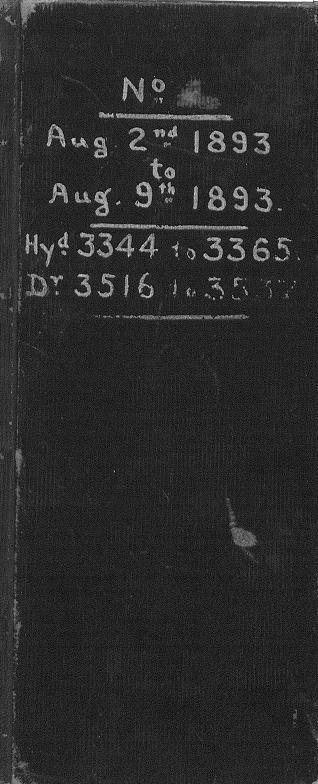 No
Aug 2nd 1893
to
Aug. 9th 1893.
Hyd. 3344 to 3365.
Dr. 3516 to